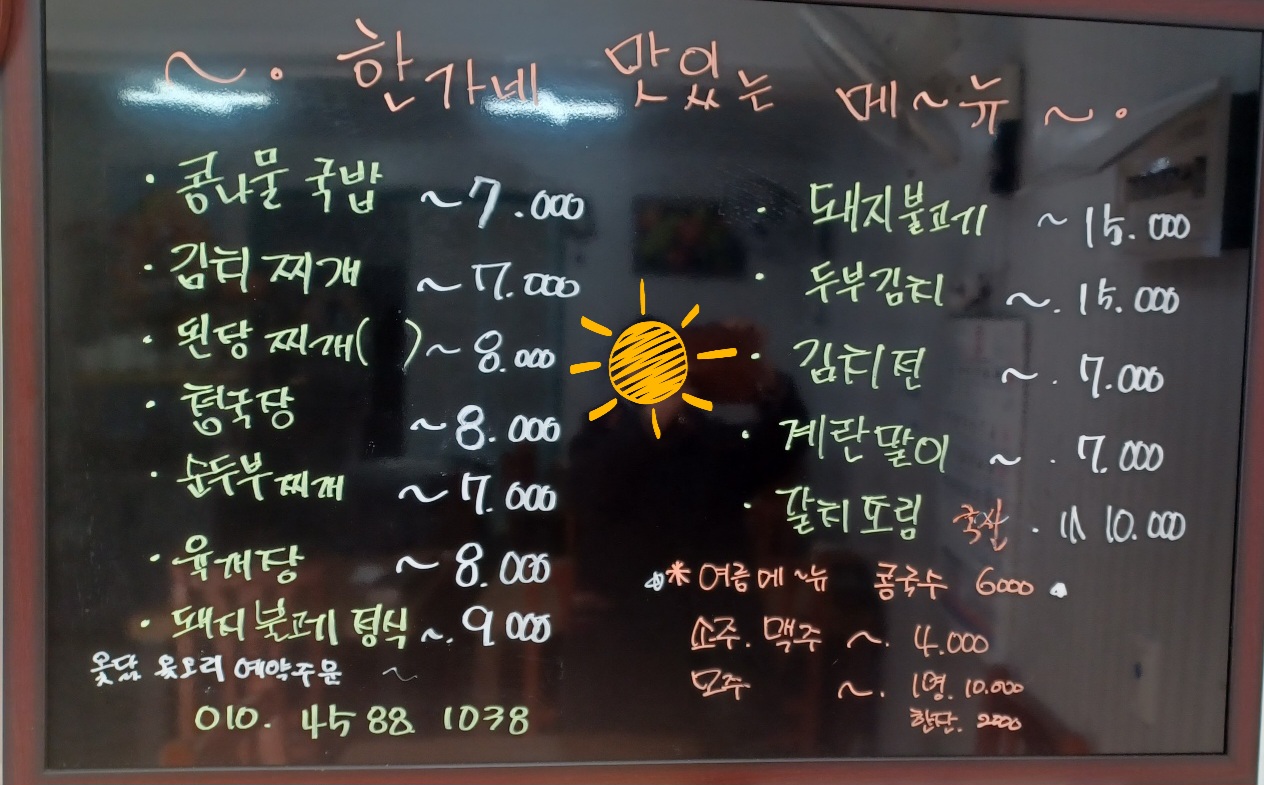 ~. 한가네 맛있는 메~뉴 ~.
· 콩나물 국밥 ~7.000
· 김치 찌개 ~7.000
· 된장 찌개( )~8.000
· 청국장 ~8.000
· 순두부찌개 ~7.000
· 육개장 ~8.000
· 돼지불고기 정식 ~.9000
옻닭 옻오리 예약주문 ~
010. 4588 1038
· 돼지불고기 ~15.000
· 두부김치 ~.15.000
· 김치전 ~.7.000
· 계란말이 ~.7.000
· 갈치조림 국산 . 1人 10.000
*여름메~뉴 콩국수 6000
소주.맥주 ~. 4.000
모주 ~. 1병.10.000
한잔.2000